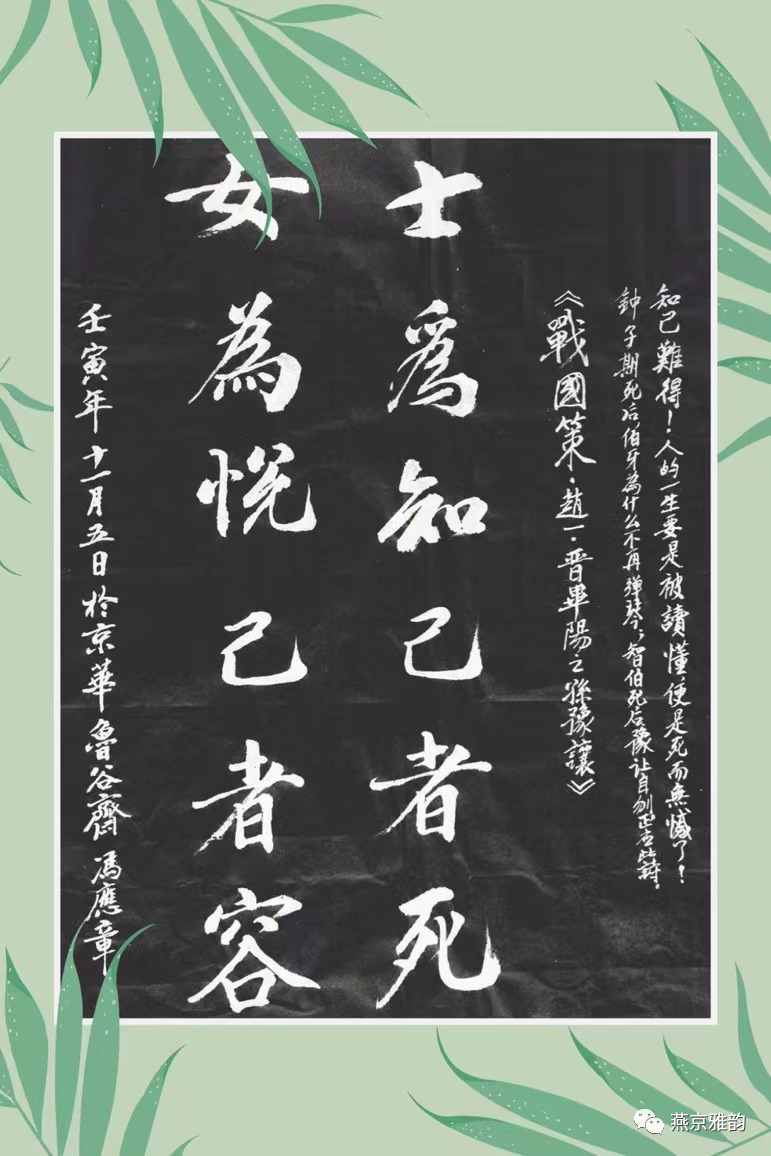 知己難得！人的一生要是被讀懂便是死而無憾了！
鈡子期死后伯牙為什么不再弹琴，智伯死后豫让自刎正应此詩。
《戰國策·趙一·晋畢陽之孫豫讓》
士為知己者死
女為悦己者容
壬寅年十一月五日於京華魯谷齋馮應章
燕京雅韵